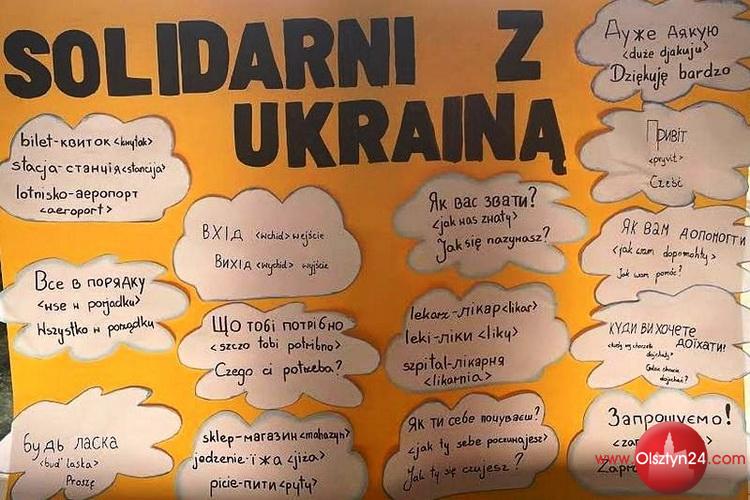 SOLIDARNI Z
UKRAINĄ
Дуже дякую
<duże djakuju>
Dziękuję bardzo
bilet-квиток <kwytok>
stacja-станція <stancija>
lotnisko-аеропорт
<aeroport>
Привіт
<pryvit>
Cześć
Як вас звати?
<jak was zwaty>
Jak się nazywasz?
ВХІД <wchid> wejście
Вихід <wychid> wyjście
Як вам допомогти
<jak wam dopomohty>
Jak wam pomóc?
Все в порядку
<wse w porjadku>
Wszystko w porządku
Що тобі потрібно
<szczo tobi potribno>
Czego ci potrzeba?
lekarz-лікар <likar>
leki-ліки <liky>
szpital-лікарня
<likarnia>
Куди ви хочете
доїхати?
Gdzie chcecie
dojechać?
будь ласка
<bud' laska>
Proszę
sklep-магазин <mahazyn>
jedzenie-їжа <jiża>
picie-пити <pyty>
Як ти себе почуваєш?
<jak ty sebe poczuwajesz>
Jak ty się czujesz?
Запрошуємо!
www.Olsztyn24.com